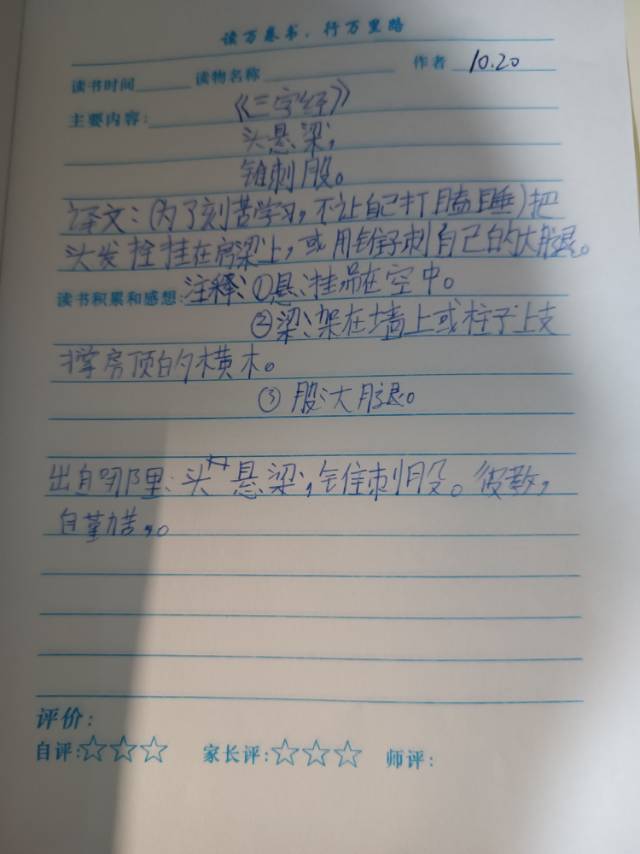 读万卷书，行万里路
读书时间 读物名称 作者 10.20
主要内容： 《三字经》
头悬梁，
锥刺股。
译文：（为了刻苦学习，不让自己打瞌睡）把
头发拴挂在房梁上，或用锥子刺自己的大腿。
读书积累和感想：注释：①悬：挂吊在空中。
②梁：架在墙上或柱子上支
撑房顶的横木。
③股：大腿。
出自哪里：头悬梁，锥刺股。彼不教，
自勤苦。
评价：
自评：☆☆☆ 家长评：☆☆☆ 师评：